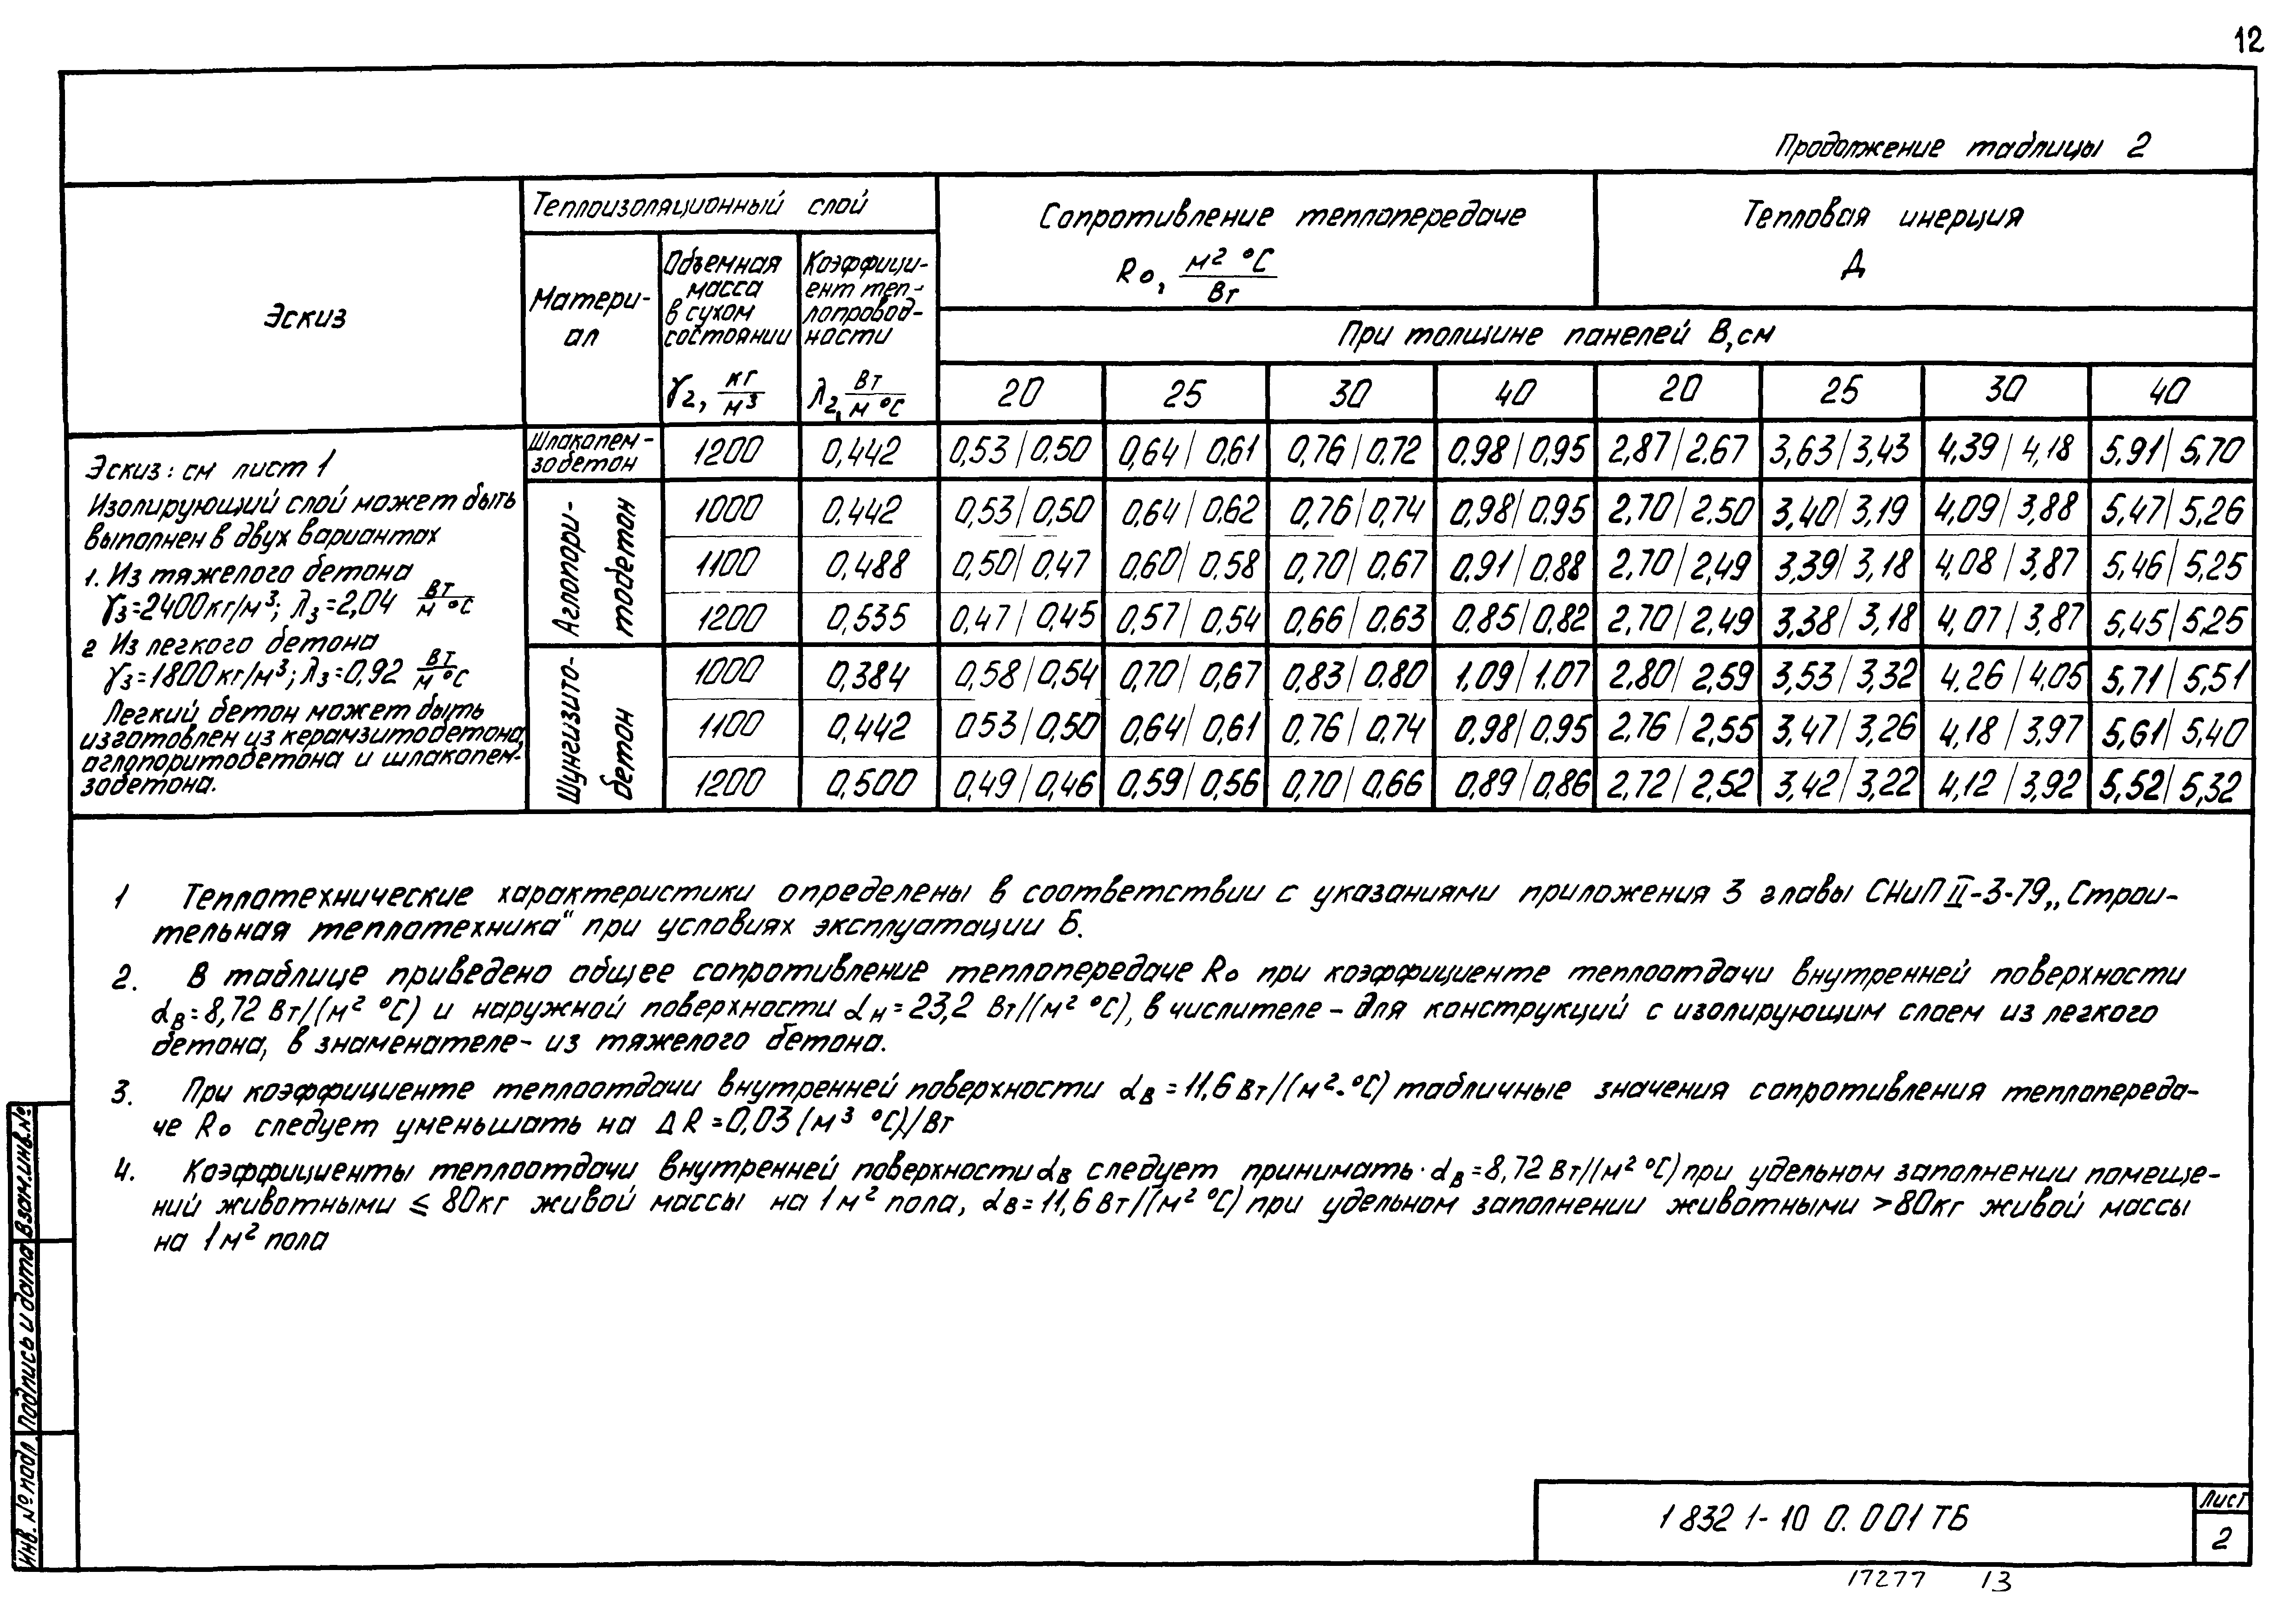 12
Продолжение таблицы 2
Эскиз
Теплоизоляционный слой
Матери-
ал
Объемная
масса
в сухом
состоянии
γ2, кг/м³
Коэффици-
ент теп-
лопровод-
ности
λ2, Вт/м °С
Сопротивление теплопередаче
Ro, м² °С/Вт
Тепловая инерция
Д
При толщине панелей В,см
20 25 30 40 20 25 30 40
Эскиз: см лист 1
Изолирующий слой может быть
выполнен в двух вариантах
1. Из тяжелого бетона
γ3=2400кг/м³; λ3=2,04 Вт/м °С
2 Из легкого бетона
γ3=1800кг/м³; λ3=0,92 Вт/м °С
Легкий бетон может быть
изготовлен из керамзитобетона,
аглопоритобетона и шлакопем-
зобетона.
Шлакопем-
зобетон
1200 0,442 0,53/0,50 0,64/0,61 0,76/0,72 0,98/0,95 2,87/2,67 3,63/3,43 4,39/4,18 5,91/5,70
Аглопори-
тобетон
1000 0,442 0,53/0,50 0,64/0,62 0,76/0,74 0,98/0,95 2,70/2,50 3,40/3,19 4,09/3,88 5,47/5,26
1100 0,488 0,50/0,47 0,60/0,58 0,70/0,67 0,91/0,88 2,70/2,49 3,39/3,18 4,08/3,87 5,46/5,25
1200 0,535 0,47/0,45 0,57/0,54 0,66/0,63 0,85/0,82 2,70/2,49 3,38/3,18 4,07/3,87 5,45/5,25
Шунгизито-
бетон
1000 0,384 0,58/0,54 0,70/0,67 0,83/0,80 1,09/1,07 2,80/2,59 3,53/3,32 4,26/4,05 5,71/5,51
1100 0,442 0,53/0,50 0,64/0,61 0,76/0,74 0,98/0,95 2,76/2,55 3,47/3,26 4,18/3,97 5,61/5,40
1200 0,500 0,49/0,46 0,59/0,56 0,70/0,66 0,89/0,86 2,72/2,52 3,42/3,22 4,12/3,92 5,52/5,32
1 Теплотехнические характеристики определены в соответствии с указаниями приложения 3 главы СНиП II-3-79 „Строи-
тельная теплотехника“ при условиях эксплуатации Б.
2. В таблице приведено общее сопротивление теплопередаче Ro при коэффициенте теплоотдачи внутренней поверхности
αв=8,72 Вт/(м² °С) и наружной поверхности αн=23,2 Вт/(м² °С), в числителе – для конструкций с изолирующим слоем из легкого
бетона, в знаменателе- из тяжелого бетона.
3. При коэффициенте теплоотдачи внутренней поверхности αв=11,6 Вт/(м²·°С) табличные значения сопротивления теплопереда-
че Ro следует уменьшать на ΔR=0,03 (м³ °С)/Вт
4. Коэффициенты теплоотдачи внутренней поверхности αв следует принимать· αв=8,72 Вт/(м² °С) при удельном заполнении помеще-
ний животными ≤ 80кг живой массы на 1 м² пола, αв=11,6 Вт/(м² °С) при удельном заполнении животными >80кг живой массы
на 1 м² пола
Инв. № подл. Подпись и дата Взам.инв.№
1 832 1-10 0.001 ТБ
Лист
2
17277 13